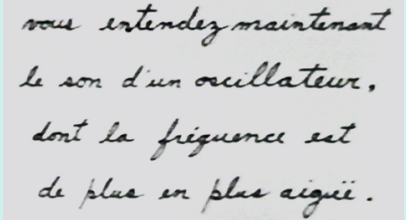 vous entendez maintenant
le son d'un oscillateur,
dont la fréquence est
de plus en plus aiguë.